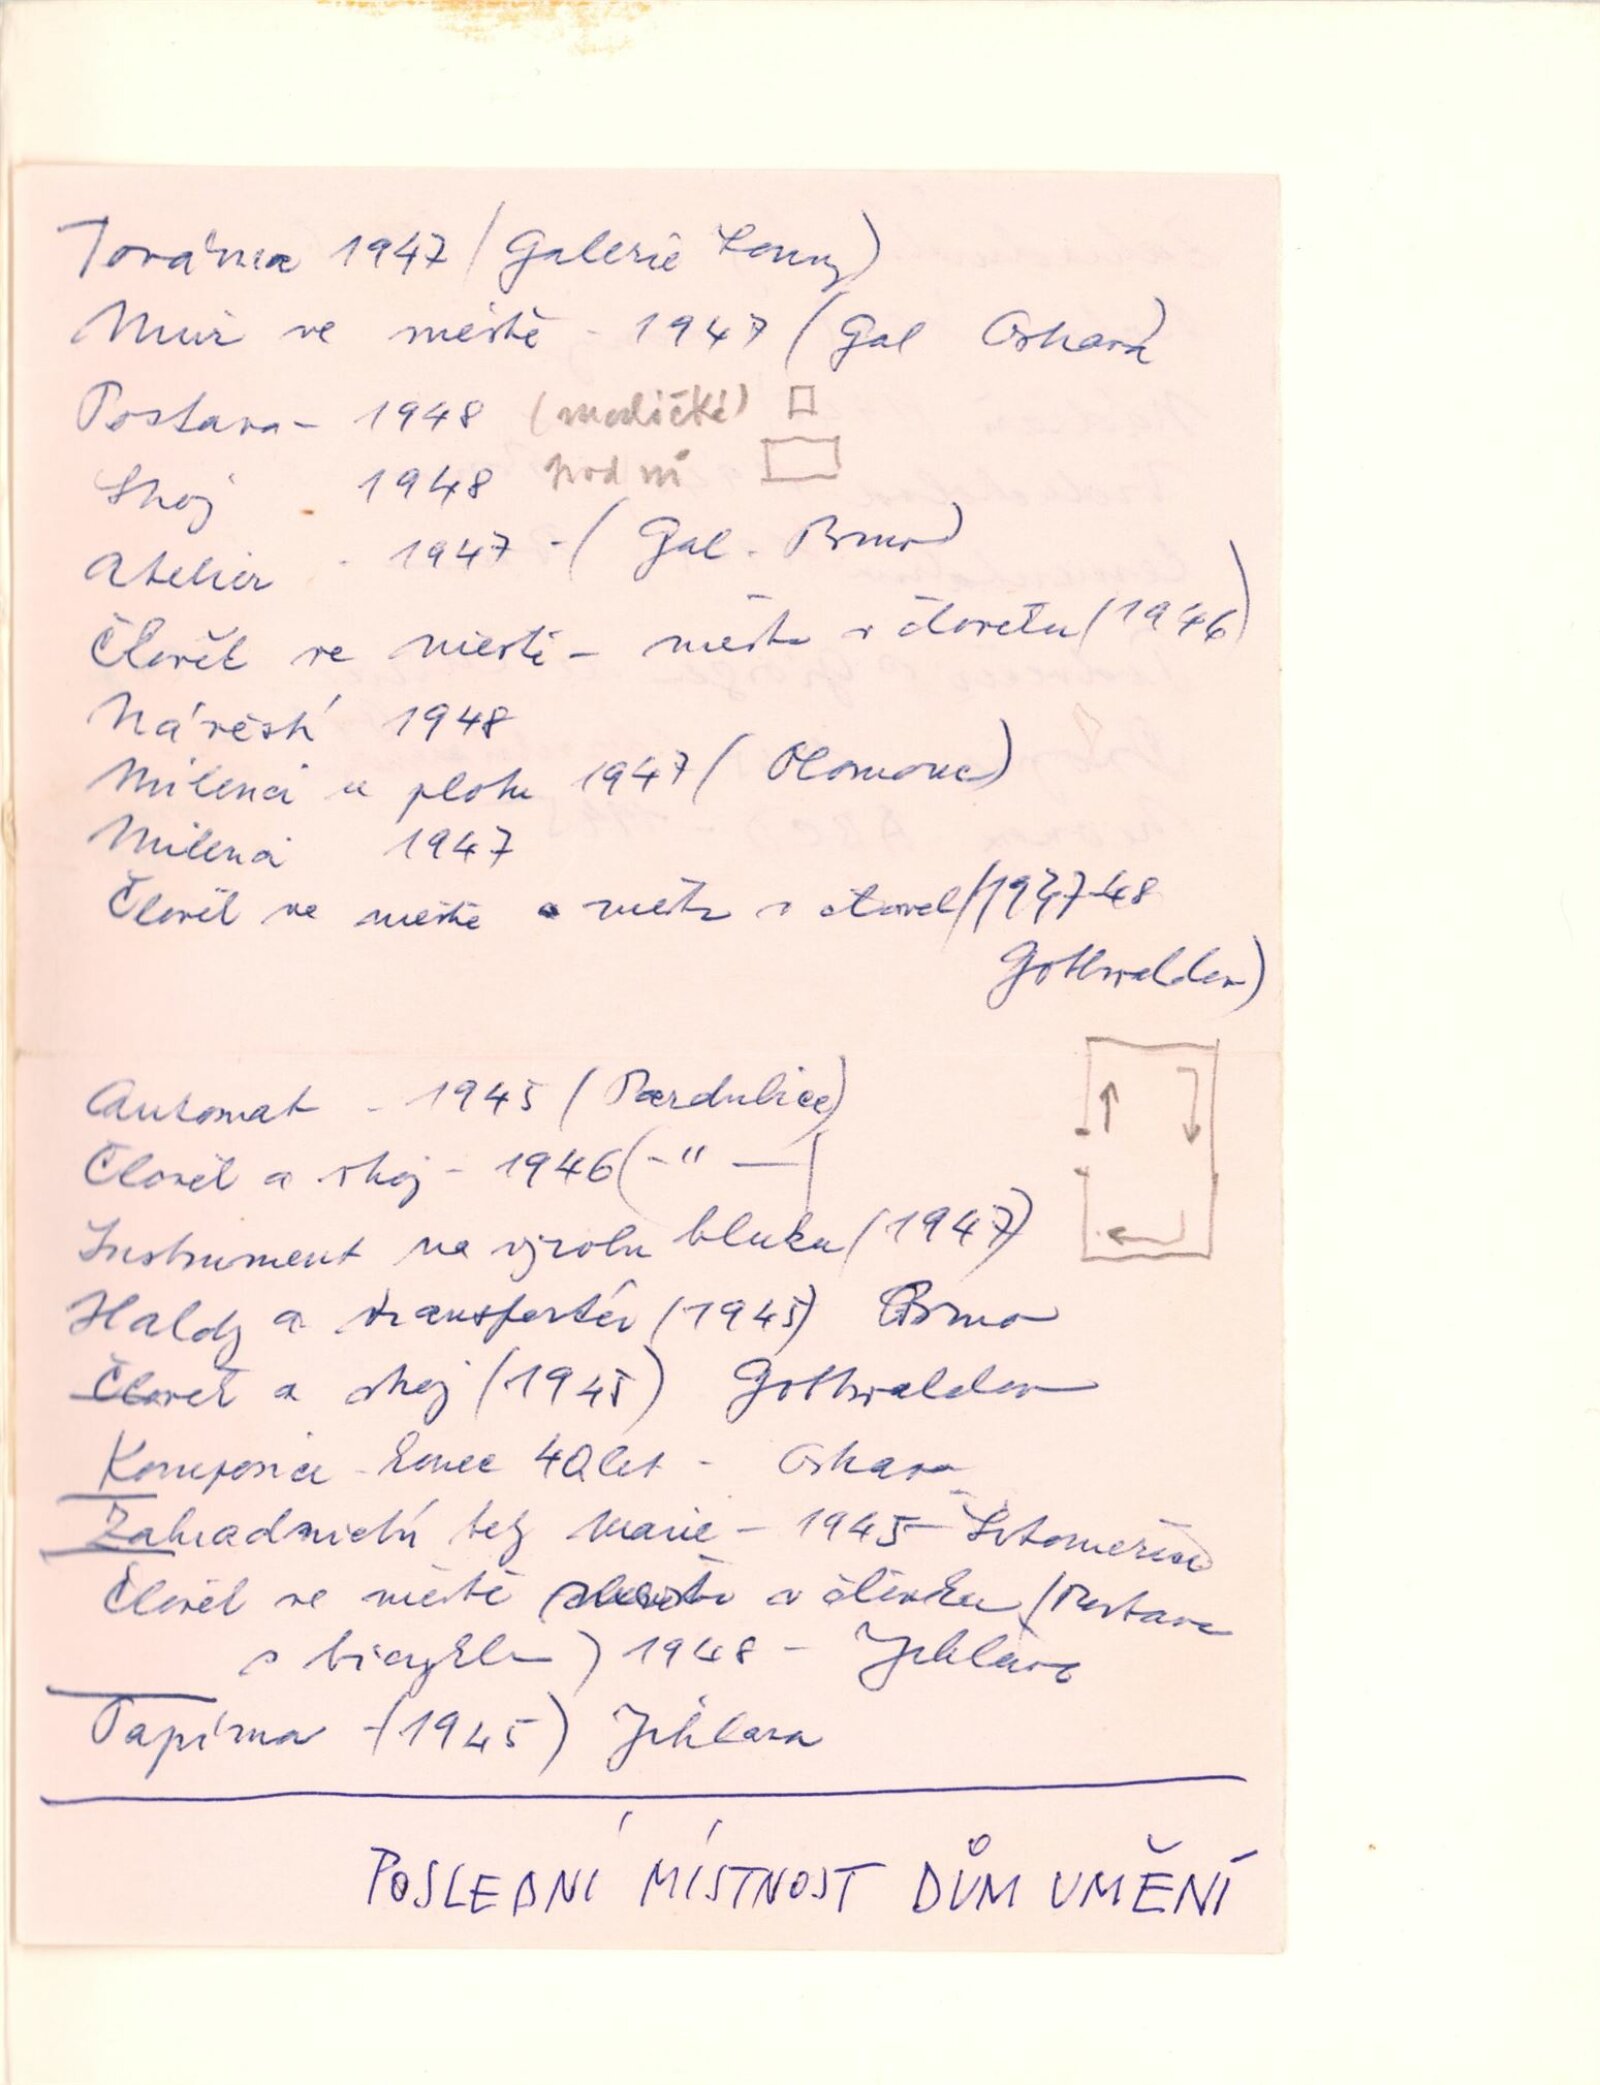 Továrna 1947 (Galerie Louny)
Muž ve městě - 1947 (Gal Ostrava)
Postava - 1948 (maličké)
Stroj 1948 pod ní
Atelier - 1947 - (Gal. Brno)
Člověk ve městě - město v člověku (1946)
Návěstí 1948
Milenci u plotu 1947 (Olomouc)
Milenci 1947
Člověk ve městě a město v člověk (1947-48
Gottwaldov)
Automat - 1945 (Pardubice)
Člověk a stroj - 1946 (-"-)
Instrument na výrobu hluku (1947)
Haldy a transportér (1945) Brno
Člověk a stroj (1945) Gottwaldov
Komposice - konec 40 let - Ostrava
Zahradnictví tety Marie - 1945 - Litoměřice
Člověk ve městě město v člověku (Postava
s bicyklem) 1948 - Jihlava
Papírna - (1945) Jihlava
POSLEDNÍ MÍSTNOST DŮM UMĚNÍ